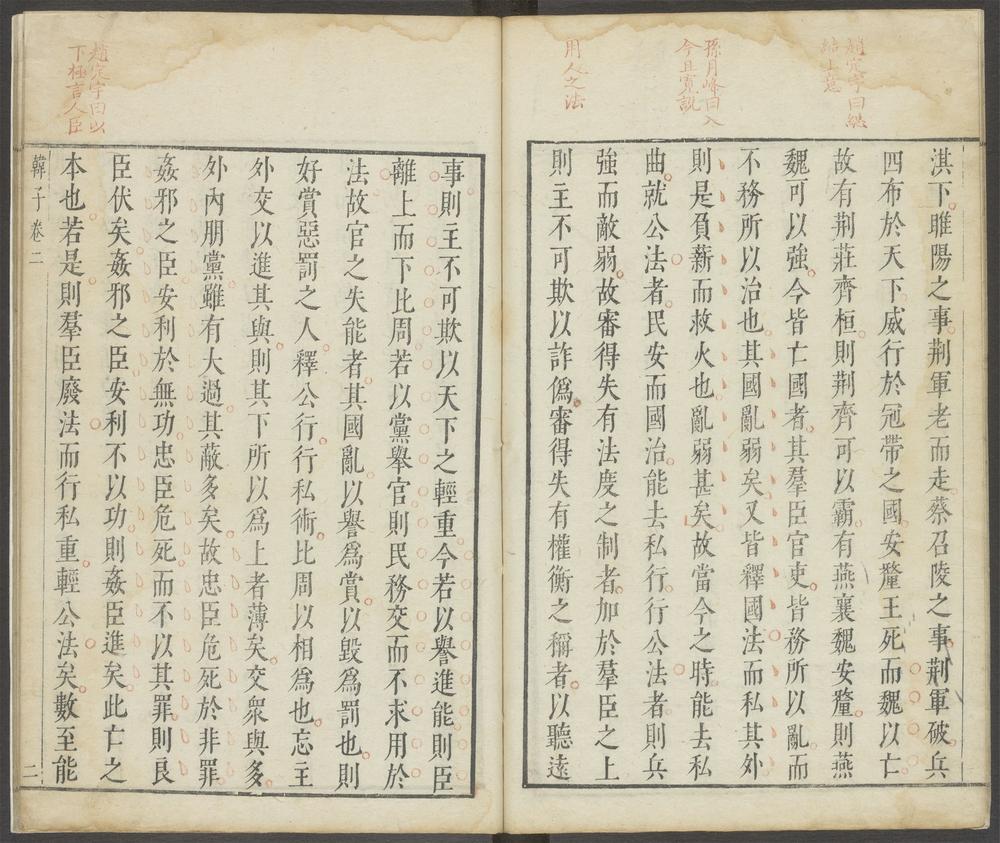 趙定宇曰總
結上意
孫月峰曰入
今且寬說
用人之法
淇下睢陽之事荆軍老而走蔡召陵之事荆軍破兵
四布於天下威行於冠帶之國安釐王死而魏以亡
故有荆莊齊桓則荆齊可以霸有燕襄魏安釐則燕
魏可以強今皆亡國者其羣臣官吏皆務所以亂而
不務所以治也其國亂弱矣又皆釋國法而私其外
則是負薪而救火也亂弱甚矣故當今之時能去私
曲就公法者民安而國治能去私行行公法者則兵
強而敵弱故審得失有法度之制者加於羣臣之上
則主不可欺以詐僞審得失有權衡之稱者以聽遠
趙定宇曰以
下極言人臣
事則主不可欺以天下之輕重今若以譽進能則臣
離上而下比周若以黨舉官則民務交而不求用於
法故官之失能者其國亂以譽爲賞以毀爲罰也則
好賞惡罰之人釋公行行私術比周以相爲也忘主
外交以進其與則其下所以爲上者薄矣交衆與多
外內朋黨雖有大過其蔽多矣故忠臣危死於非罪
姦邪之臣安利於無功忠臣危死而不以其罪則良
臣伏矣姦邪之臣安利不以功則姦臣進矣此亡之
本也若是則羣臣廢法而行私重輕公法矣數至能
韓子卷二
二